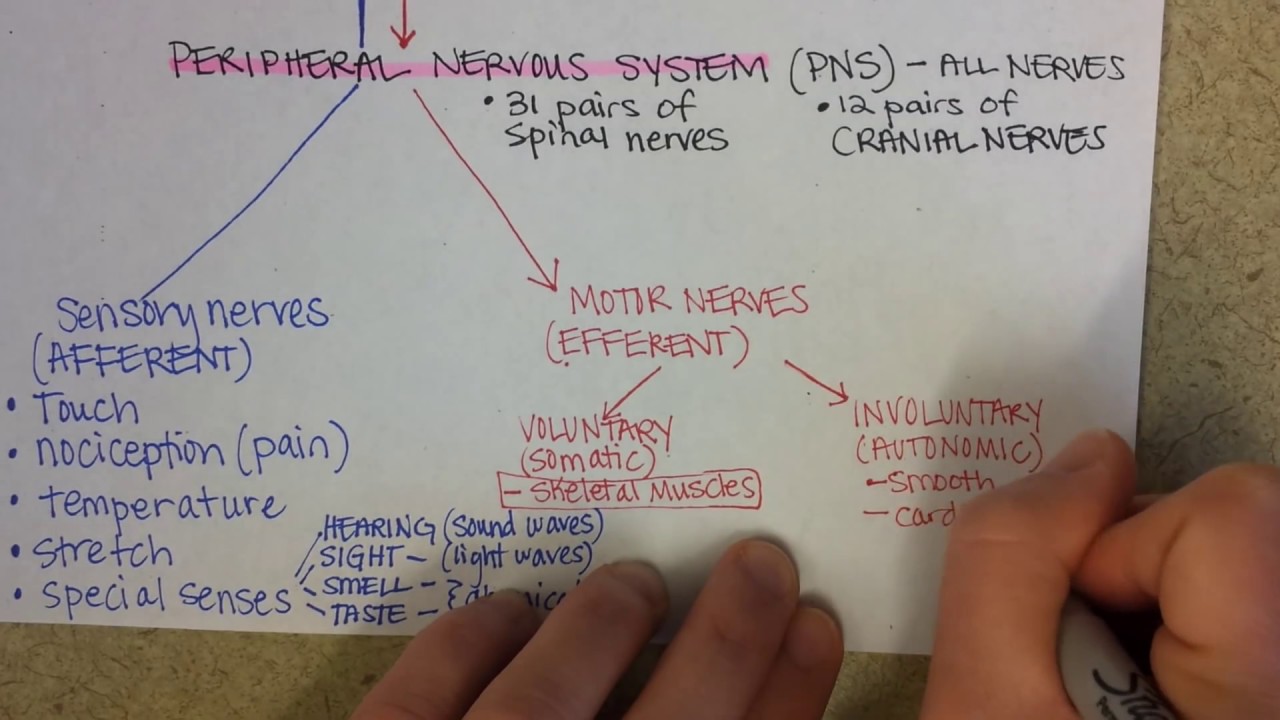 PERIPHERAL NERVOUS SYSTEM (PNS) - ALL NERVES
• 31 pairs of
Spinal nerves
• 12 pairs of
CRANIAL NERVES
Sensory nerves
(AFFERENT)
• Touch
• nociception (pain)
• temperature
• stretch
• special senses
HEARING (sound waves)
SIGHT - (light waves)
SMELL -
TASTE -
MOTOR NERVES
(EFFERENT)
VOLUNTARY
(somatic)
- Skeletal Muscles
INVOLUNTARY
(AUTONOMIC)
- Smooth
- card